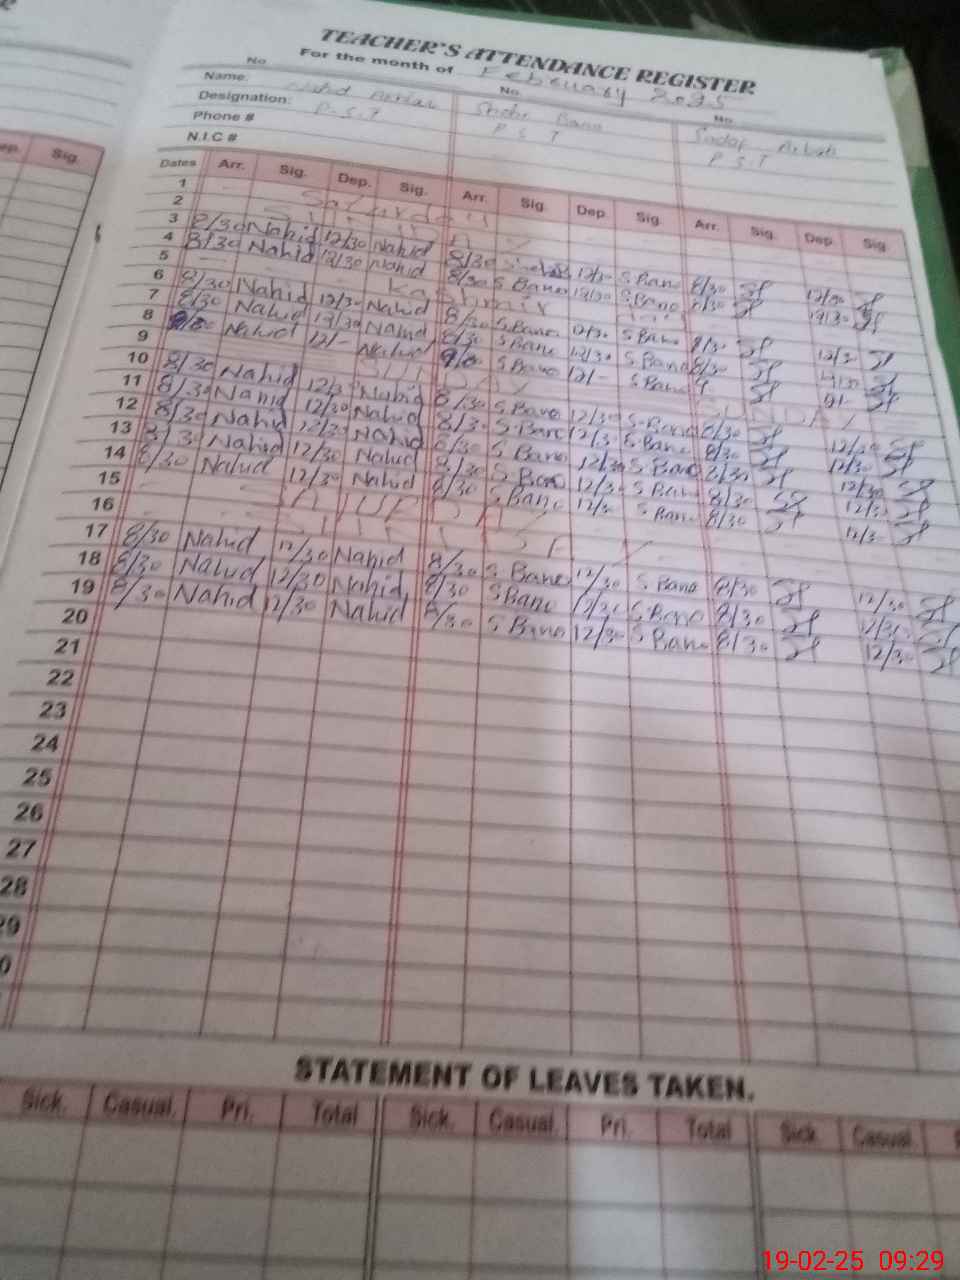 TEACHER'S ATTENDANCE REGISTER
For the month of February 2025
No. No. No.
Name: Nahid Shehr Bano Sadaf Arbab
Designation: P.S.T P S T P S T
Phone #
N.I.C #
Dates Arr. Sig. Dep. Sig. Arr. Sig. Dep Sig. Arr. Sig. Dep. Sig
1 Saturday
2
3 8/30 Nahid 12/30 Nahid 8/30 12/30 S Bano 8/30 12/30
4 8/30 Nahid 12/30 Nahid 8/30 S Bano 12/30 S Bano 8/30 12/30
5 Kashmir
6 8/30 Nahid 12/30 Nahid 8/30 S Bano 12/30 S Bano 8/30 12/30
7 8/30 Nahid 12/30 Nahid 8/30 S Bano 12/30 S Bano 8/30 12/30
8 Nahid 12/- Nahid S Bano 12/- S Bano
9 SUNDAY
10 8/30 Nahid 12/30 Nahid 8/30 S Bano 12/30 S Bano 8/30 12/30
11 8/30 Nahid 12/30 Nahid 8/30 S Bano 12/30 S Bano 8/30 12/30
12 8/30 Nahid 12/30 Nahid 8/30 S Bano 12/30 S Bano 8/30 12/30
13 8/30 Nahid 12/30 Nahid 8/30 S Bano 12/30 S Bano 8/30 12/30
14 8/30 Nahid 12/30 Nahid 8/30 S Bano 12/30 S Bano 8/30 12/30
15
16
17 8/30 Nahid 12/30 Nahid 8/30 S Bano 12/30 S Bano 8/30 12/30
18 8/30 Nahid 12/30 Nahid 8/30 S Bano 12/30 S Bano 8/30 12/30
19 8/30 Nahid 12/30 Nahid 8/30 S Bano 12/30 S Bano 8/30 12/30
20
21
22
23
24
25
26
27
28
29
0
STATEMENT OF LEAVES TAKEN.
Sick. Casual. Pri. Total Sick. Casual. Pri. Total Sick. Casual.
ep. Sig.
19-02-25 09:29